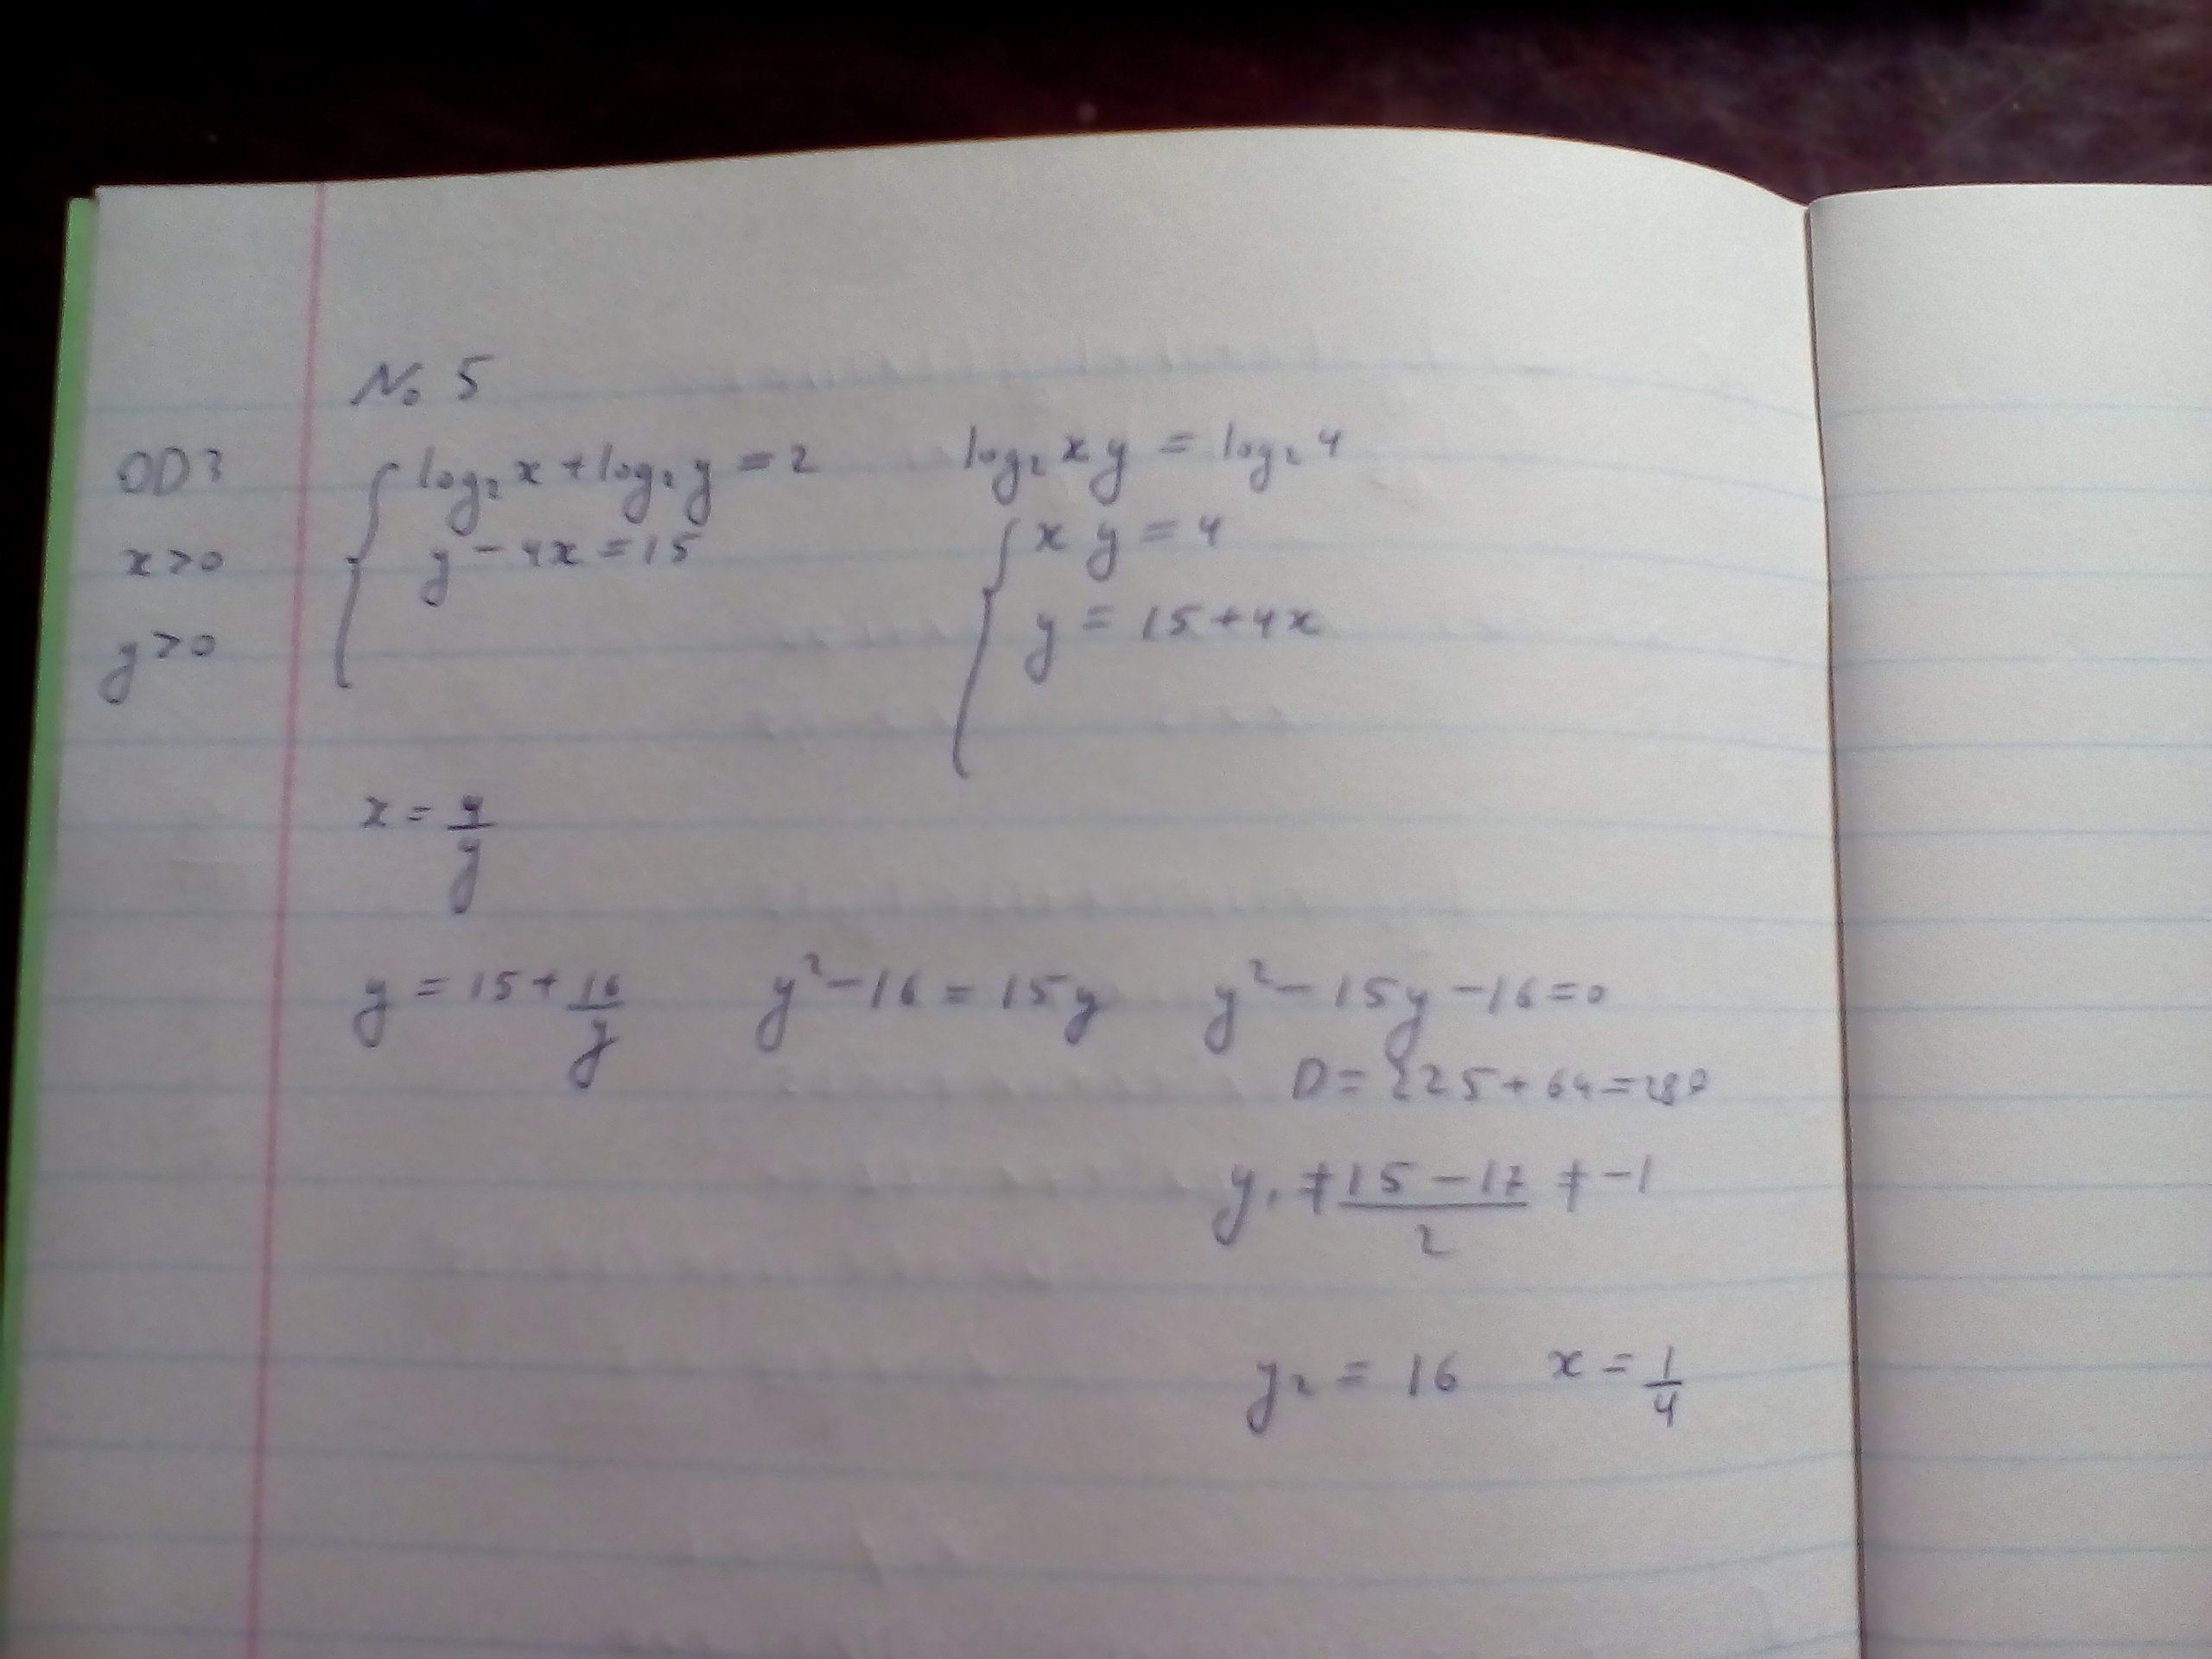 № 5
ОДЗ
x>0
y>0
{ log₂x + log₂y = 2
y - 4x = 15
log₂xy = log₂4
{ xy = 4
y = 15 + 4x
x = 4/y
y = 15 + 16/y    y² - 16 = 15y    y² - 15y - 16 = 0
D = 225 + 64 = 289
y₁ ≠ (15 - 17)/2 ≠ -1
y₂ = 16    x = 1/4